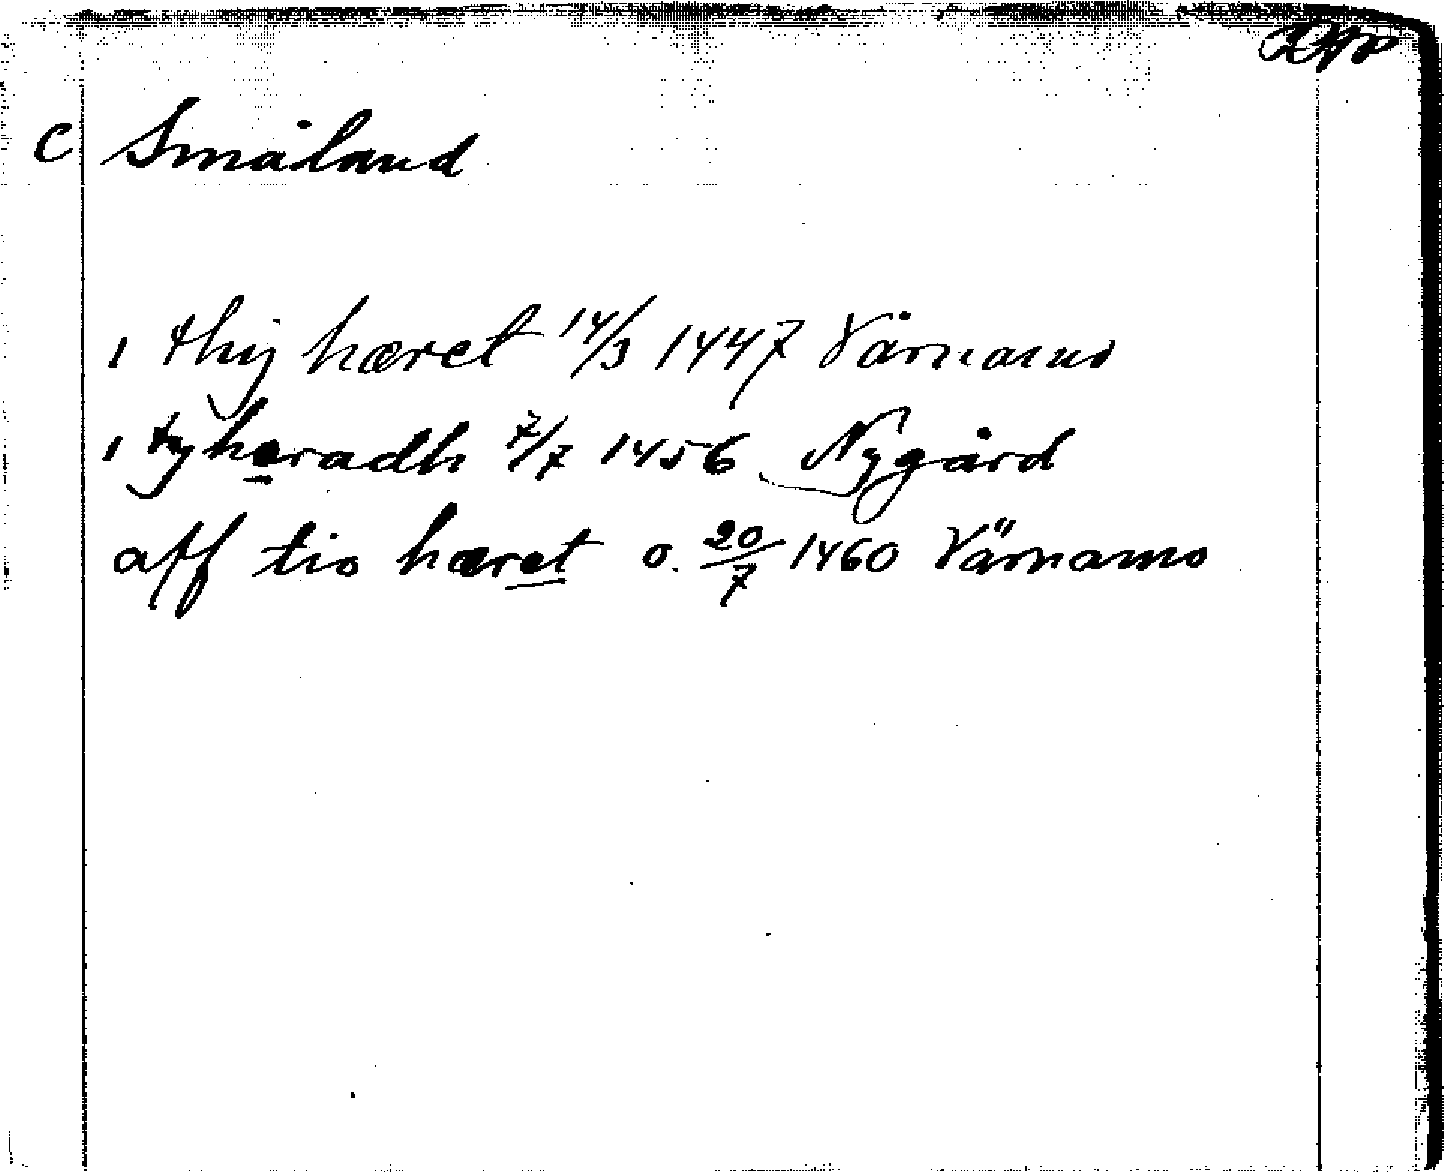 C Småland
1 thij hæret 14/3 1447 Värnamo
1 tyheradh 7/7 1456 Nygård
aff tio hæret o. 20/7 1460 Värnamo